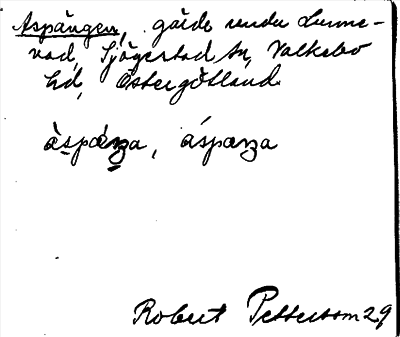 Aspängen, gärde under Lunne-
vad, Sjögestad sn, Valkebo
hd, Östergötland
àspáŋa, áspæŋa
Robert Pettersson 29